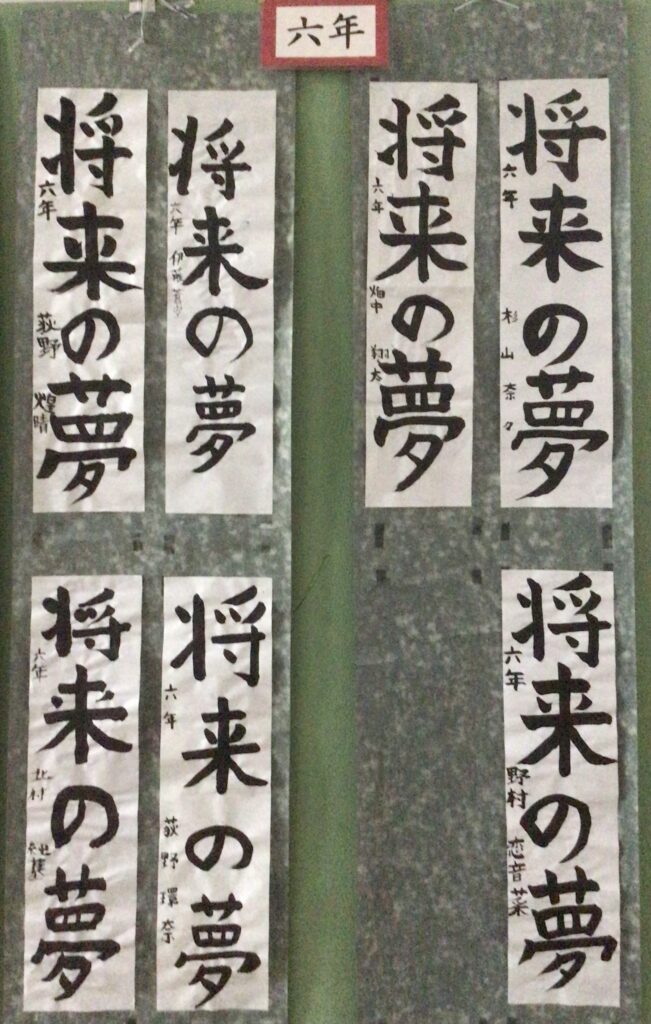 六年
将来の夢
六年 杉山 奈々
将来の夢
六年 畑中 翔太
将来の夢
六年 伊
将来の夢
六年 荻野 煌晴
将来の夢
六年 野村 恋音菜
将来の夢
六年 荻野 環奈
将来の夢
六年 北村